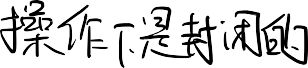 操作下是封闭的